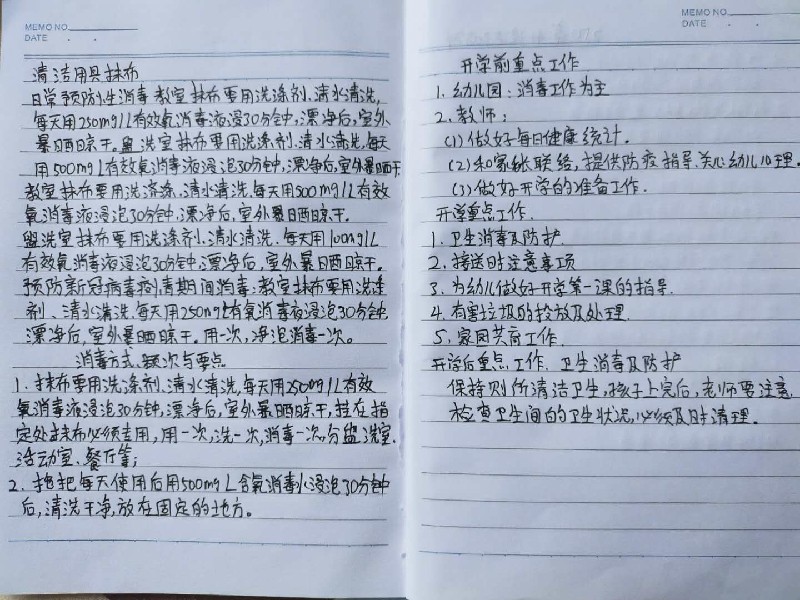 MEMO NO.
DATE . .
清洁用具抹布
日常预防性消毒教室抹布要用洗涤剂、清水清洗,
每天用250mg/L有效氯消毒液浸泡30分钟,漂净后,室外
暴晒晾干。盥洗室抹布要用洗涤剂、清水清洗,每天
用500mg/L有效氯消毒液浸泡30分钟,漂净后,室外暴晒干
教室抹布要用洗涤、清水清洗,每天用500mg/L有效
氯消毒液浸泡30分钟,漂净后,室外暴晒晾干。
盥洗室抹布要用洗涤剂、清水清洗.每天用100mg/L
有效氯消毒液浸泡30分钟,漂净后,室外暴晒晾干。
预防新冠病毒疫情期间消毒:教室抹布要用洗涤
剂、清水清洗.每天用250mg/L有氯消毒液浸泡30分钟
漂净后,室外暴晒晾干.用一次,净泡消毒一次。
消毒方式、频次与要点
1.抹布要用洗涤剂、清水清洗,每天用250mg/L有效
氯消毒液浸泡30分钟,漂净后,室外暴晒晾干,挂在指
定处,抹布必须专用,用一次,洗一次,消毒一次,分盥洗室.
活动室、餐厅等;
2.拖把每天使用后用500mg/L含氯消毒水浸泡30分钟
后,清洗干净,放在固定的地方。
MEMO NO.
DATE . .
开学前重点工作
1.幼儿园:消毒工作为主
2.教师:
(1)做好每日健康统计.
(2)和家长联络,提供防疫指导.关心幼儿心理。
(3)做好开学的准备工作.
开学重点工作.
1.卫生消毒及防护
2.接送时注意事项
3.为幼儿做好开学第一课的指导.
4.有害垃圾的投放及处理.
5.家园共育工作.
开学后重点工作.卫生消毒及防护
保持厕所清洁卫生,孩子上完后,老师要注意
检查卫生间的卫生状况,必须及时清理。